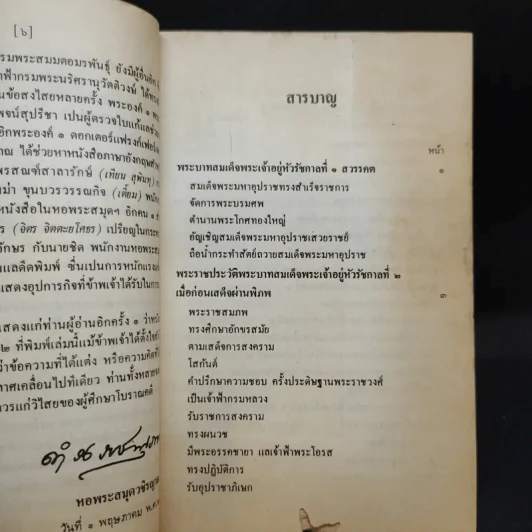 [๖]
รมพระสมมตอมรพันธุ์ ยังมีผู้อื่นอีก
ฟ้ากรมพระนริศรานุวัดติวงษ์ ได้ทรง
นข้อสงไสยหลายครั้ง พระองค์ ๑
พจน์สุปรีชา เปนผู้ตรวจใบแก้แล
อีกพระองค์ ๑ ดอกเตอร์แฟรงก์เฟอร์
ได้ช่วยหาหนังสือภาษาอังกฤษสำ
พรสณฑ์สาลารักษ์ (เทียน สุพินทุ)
ม่า ขุนบวรวรรณกิจ (เตี้ยม) พนัก
หนังสือในหอพระสมุดฯ อีกคน ๑
ร (จิตร จิตตะยโศธร) เปรียญในกระท
ักษร กับนายชิด พนักงานหอพระส
แลดีดพิมพ์ ซึ่นเปนการหนักแรง
แสดงอุปการกิจที่ข้าพเจ้าได้รับในการ
แสดงแก่ท่านผู้อ่านอีกครั้ง ๑ ว่าหนัง
๒ ที่พิมพ์เล่มนี้แม้ข้าพเจ้าได้ตั้งใจ
ว่าข้อความที่ได้แต่ง หรือความคิดที่
าศเคลื่อนไปทีเดียว ท่านทั้งหลาย
ควรแก่วิไสยของผู้ศึกษาโบราณคดี
หอพระสมุดวชิรญาณ
วันที่ ๑ พฤษภาคม พ.ศ.
สารบาญ
หน้า
พระบาทสมเด็จพระเจ้าอยู่หัวรัชกาลที่ ๑ สวรรคต ๑
สมเด็จพระมหาอุปราชทรงสำเร็จราชการ
จัดการพระบรมศพ
ตำนานพระโกศทองใหญ่
อัญเชิญสมเด็จพระมหาอุปราชเสวยราชย์
ถือน้ำกระทำสัตย์ถวายสมเด็จพระมหาอุปราช
พระราชประวัติพระบาทสมเด็จพระเจ้าอยู่หัวรัชกาลที่ ๒
เมื่อก่อนเสด็จผ่านพิภพ ๓
พระราชสมภพ
ทรงศึกษาอักขรสมัย
ตามเสด็จการสงคราม
โสกันต์
คำปรึกษาความชอบ ครั้งประดิษฐานพระราชวงศ์
เป็นเจ้าฟ้ากรมหลวง
รับราชการสงคราม
ทรงผนวช
มีพระอรรคชายา แลเจ้าฟ้าพระโอรส
ทรงปฏิบัติการ
รับอุปราชาภิเษก